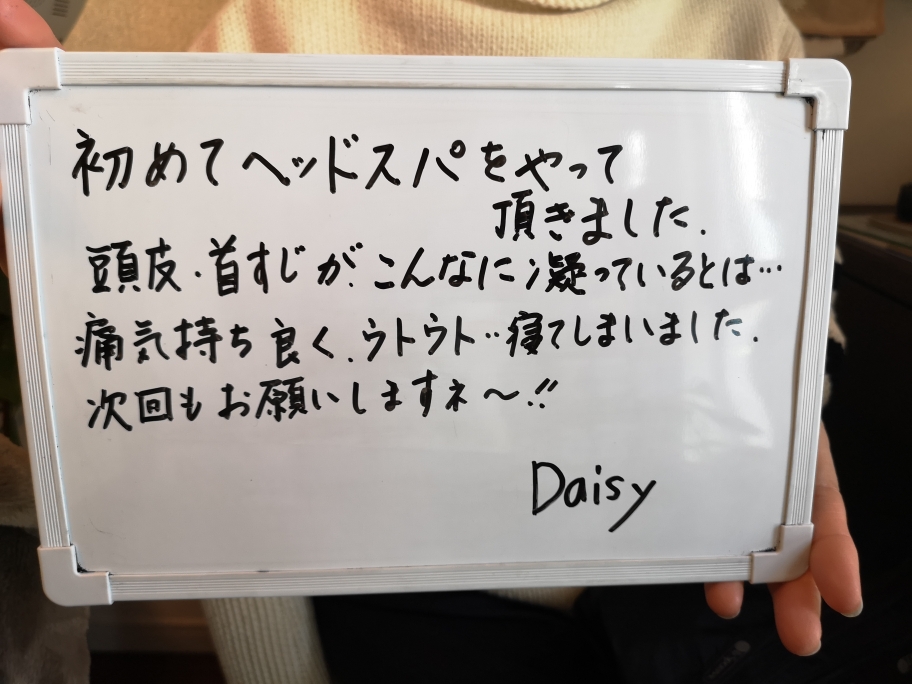 初めてヘッドスパをやって
頂きました.
頭皮・首すじが、こんなに凝っているとは…
痛気持ち良く、ウトウト‥寝てしまいました.
次回もお願いしますネ～!!
Daisy